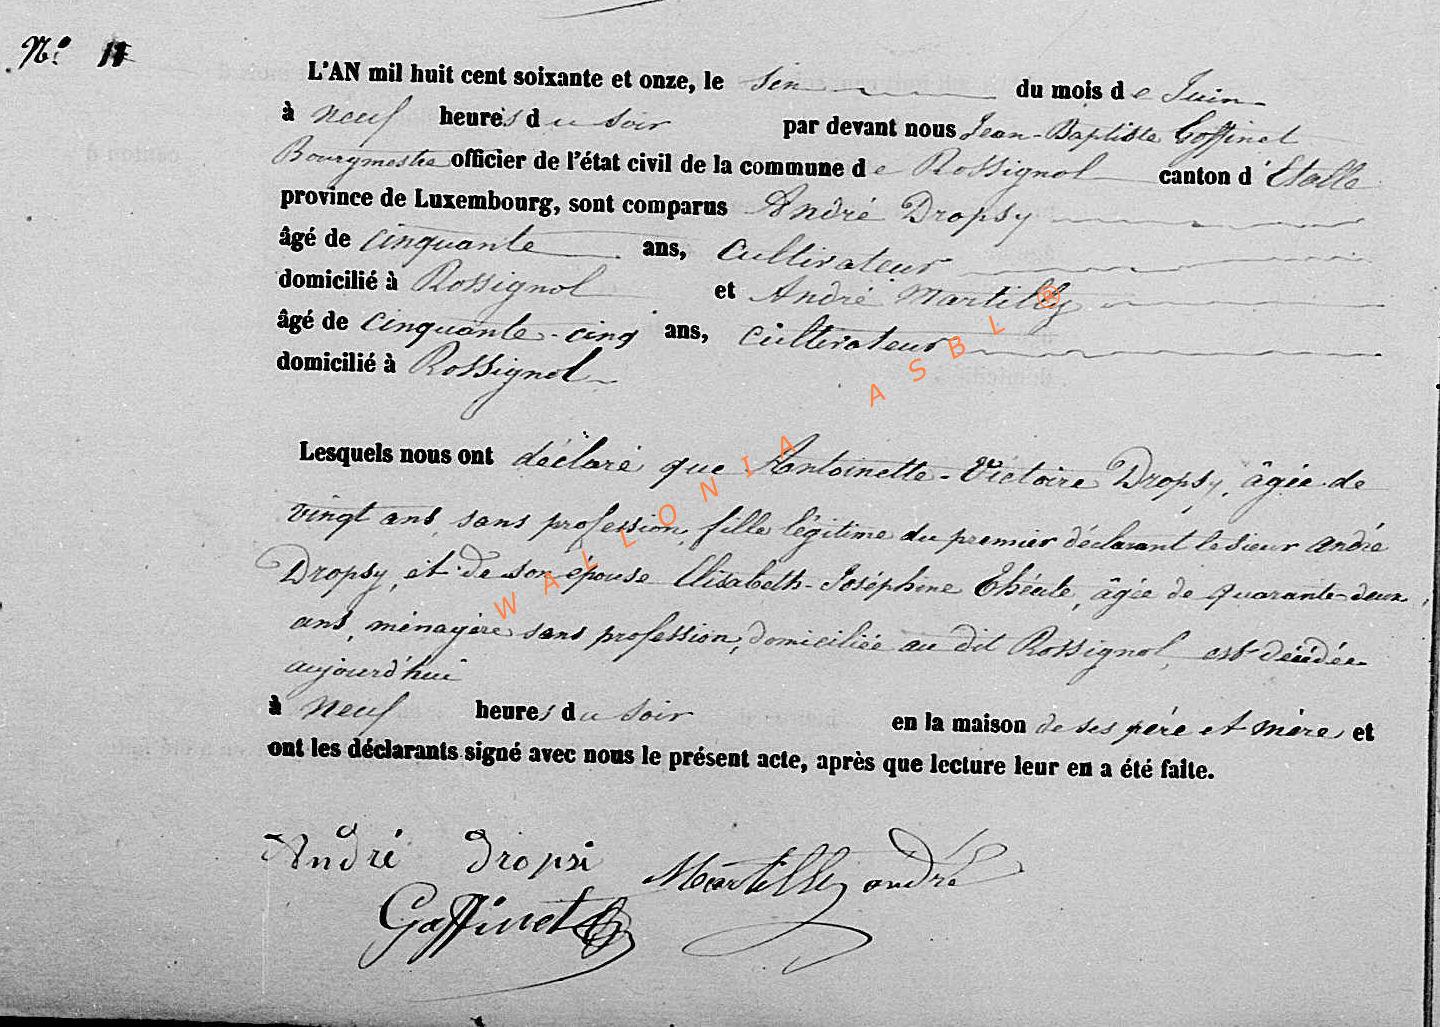 N.º 11
L'AN mil huit cent soixante et onze, le six du mois de Juin
à neuf heures du soir par devant nous Jean-Baptiste Goffinet
Bourgmestre officier de l'état civil de la commune de Rossignol canton d'Etalle
province de Luxembourg, sont comparus André Dropsy
âgé de cinquante ans, cultivateur
domicilié à Rossignol et André Martilly
âgé de cinquante-cinq ans, cultivateur
domicilié à Rossignol
Lesquels nous ont déclaré que Antoinette-Victoire Dropsy, âgée de
vingt ans, sans profession, fille légitime du premier déclarant le sieur André
Dropsy, et de son épouse Elisabeth-Joséphine, âgée de quarante-deux
ans, ménagère sans profession, domiciliée au dit Rossignol, est décédée
aujourd'hui
à neuf heures du soir en la maison de ses père et mère et
ont les déclarants signé avec nous le présent acte, après que lecture leur en a été faite.
André Dropsi Martilly andré
Goffinet
WALLONIA ASBL ®